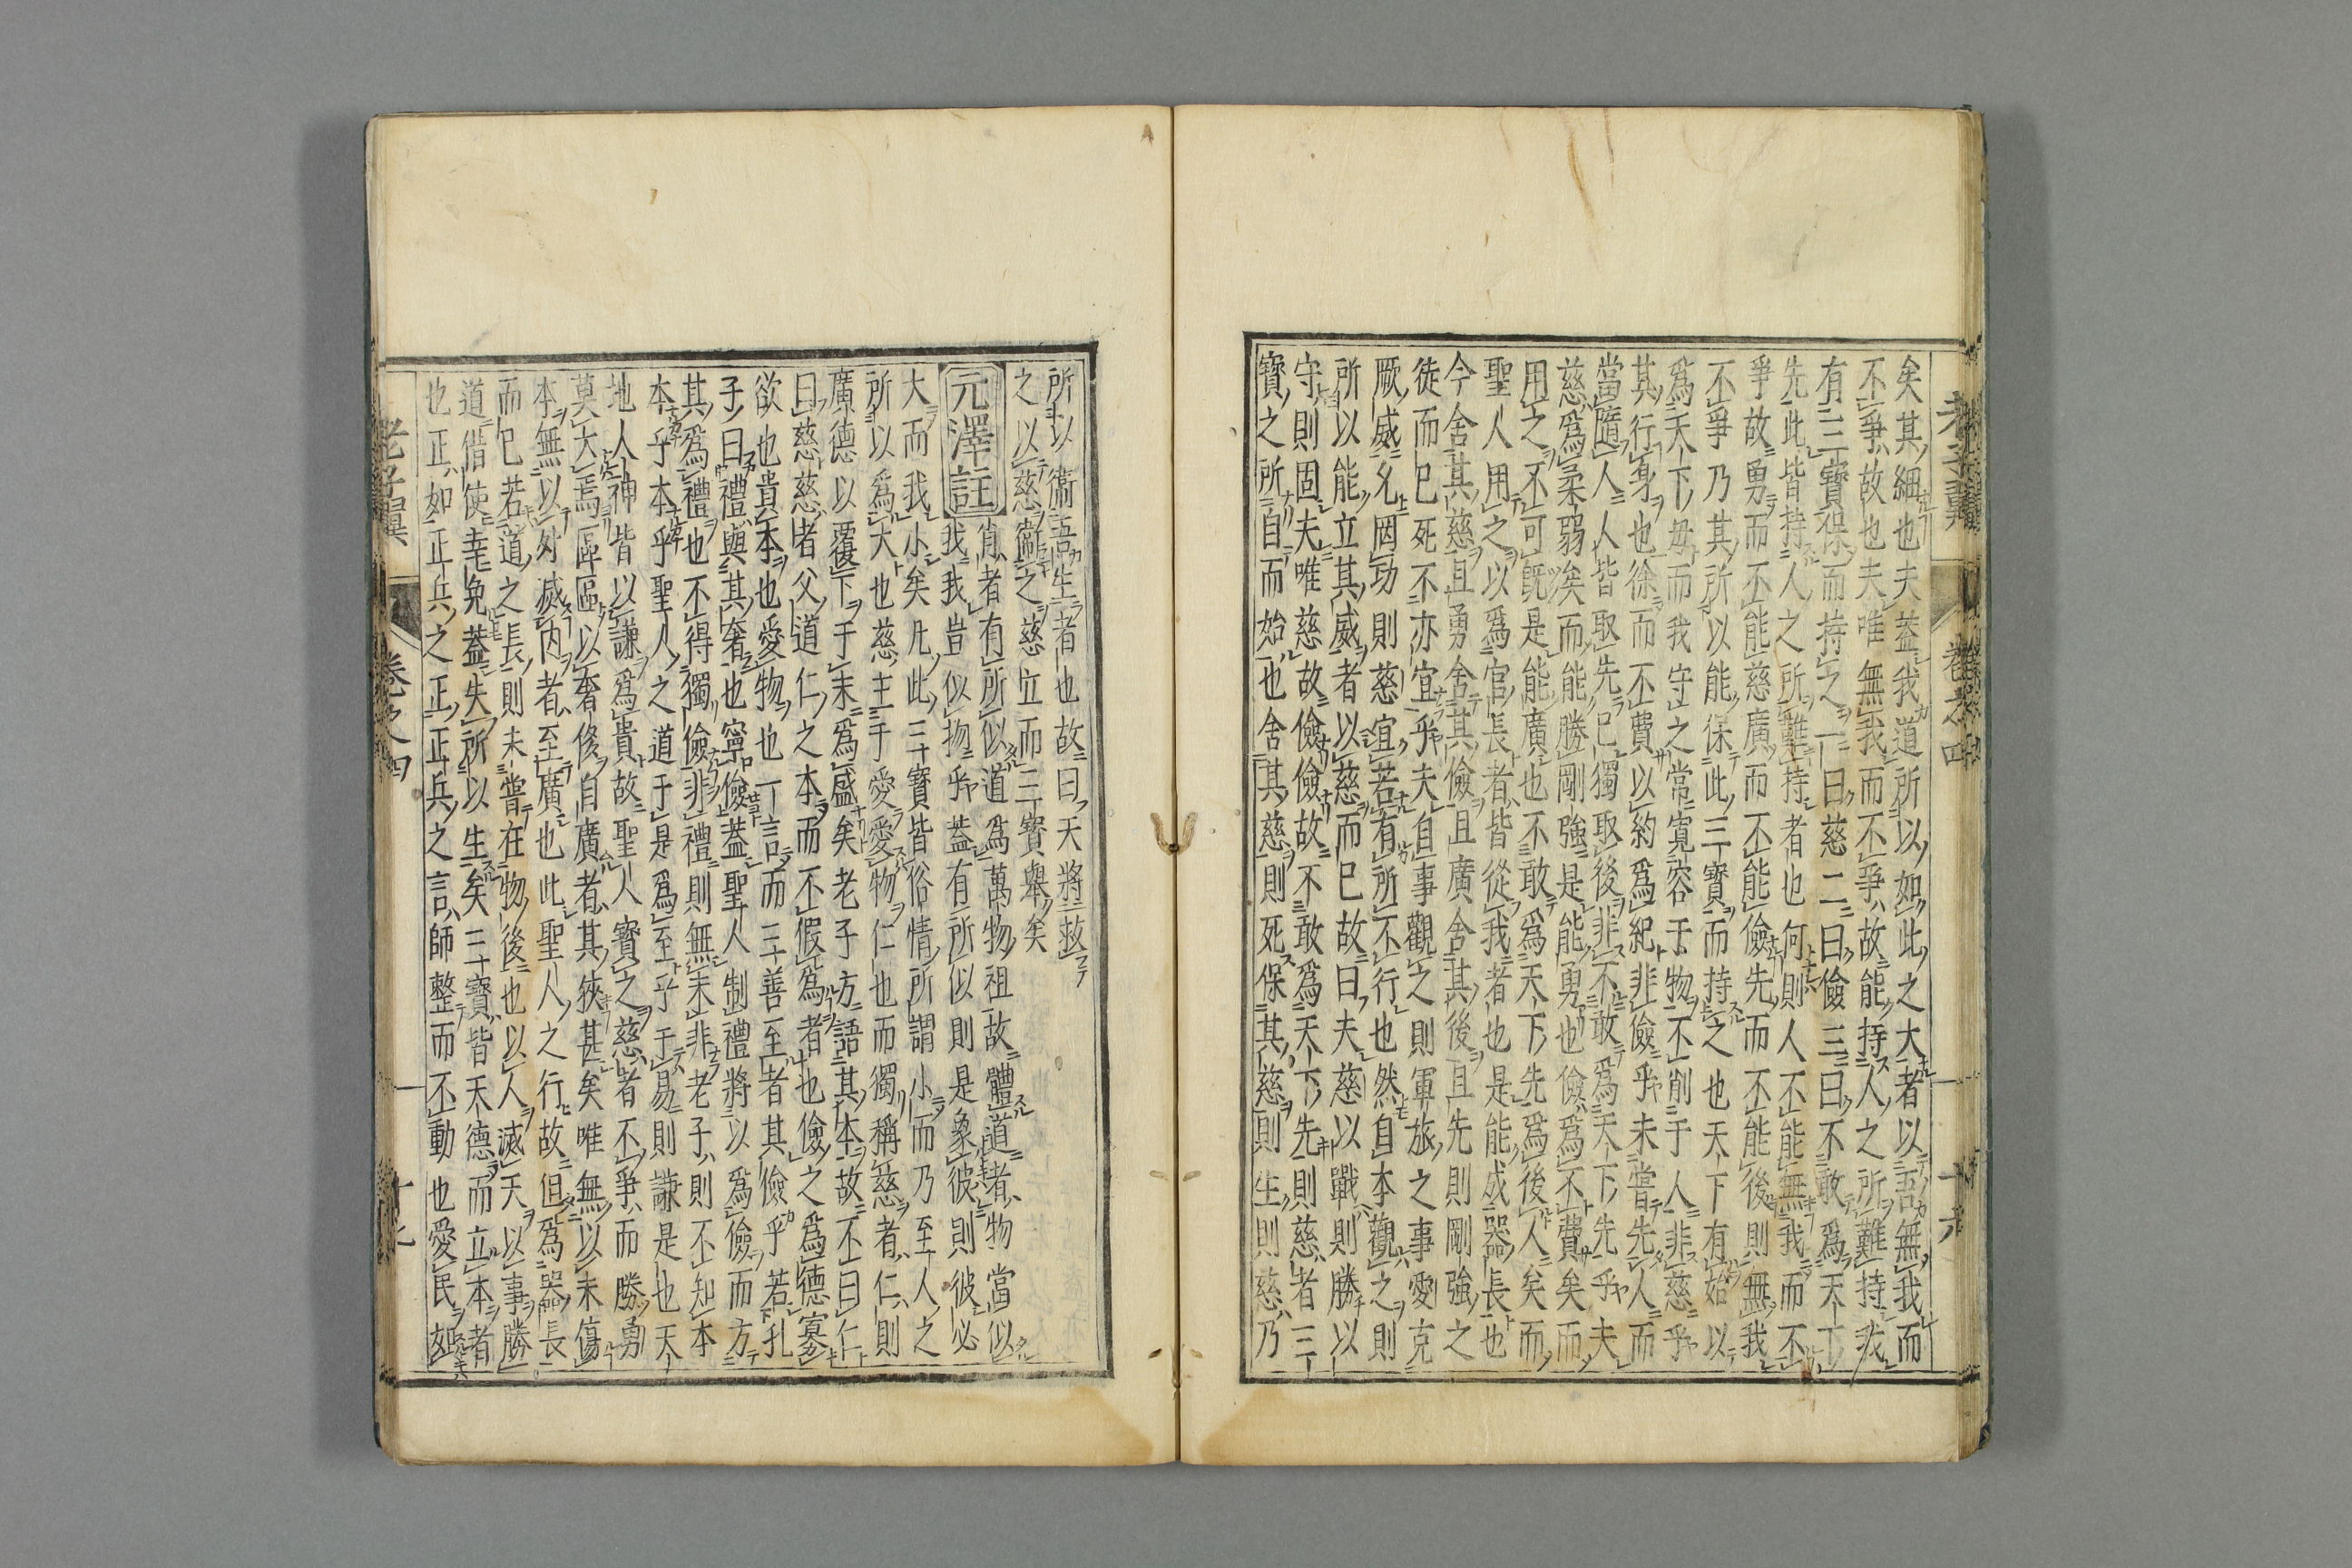 矣其細也夫蓋我道所以如此之大者以吾無我而
不爭故也夫唯無我而不爭故能持人之所難持我
有三寶保而持之一曰慈二曰儉三曰不敢爲天下
先此皆持人之所難持者也何則人不能無我而不
爭故勇而不能慈廣而不能儉先而不能後則無我
不爭乃其所以能保此三寶而持之也天下有始以
爲天下毋而我守之常寛容于物不削于人非慈乎
其行身也徐而不費以約爲紀非儉乎未嘗先人而
當隨人人皆取先己獨取後非不敢爲天下先乎夫
慈爲柔弱矣而能勝剛強是能勇也儉爲不費矣而
用之不可既是能廣也不敢爲天下先爲後人矣而
聖人用之以爲官長者皆從我者也是能成器長也
今舍其慈且勇舍其儉且廣舍其後且先則剛強之
徒而已死不亦宜乎夫自事觀之則軍旅之事愛克
厥威允罔功則慈宜若有所不行也然自本觀之則
所以能立其威者以慈而已故曰夫慈以戰則勝以
守則固夫唯慈故儉儉故不敢爲天下先則慈者三
寶之所自而始也舍其慈則死保其慈則生則慈乃
老子翼 卷之四 十九
所以衞吾生者也故曰天將救
之以慈衞之慈立而三寶舉矣
元澤註 肖者有所似道爲萬物祖故體道者物當似
我我豈似物乎蓋有所似則是象彼則彼必
大而我小矣凡此三寶皆俗情所謂小而乃至人之
所以爲大也慈主于愛愛物仁也而獨稱慈者仁則
廣德以覆下于末爲盛矣老子方語其本故不曰仁
曰慈慈者父道仁之本而不假爲者也儉之爲德寡
欲也貴本也愛物也一言而三善至者其儉乎若孔
子曰禮與其奢也寧儉蓋聖人制禮將以爲儉而方
其爲禮也不得獨儉非禮則無末非老子則不知本
本乎本乎聖人之道于是爲至乎于易則謙是也天
地人神皆以謙爲貴故聖人寶之慈者不爭而勝勇
莫大焉區區以奢侈自廣者其狹甚矣唯無以未傷
本無以外滅内者至廣也此聖人之行故但爲器長
而已若道之長則未嘗在物後也以人滅天以事勝
道借使幸免蓋失所以生矣三寶皆天德而立本者
也正如正兵之正正兵之言師整而不動也愛民如
老子翼 卷之四